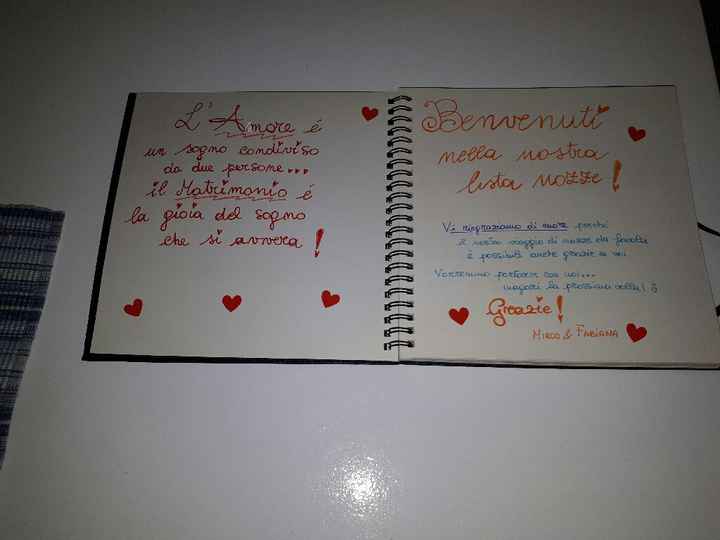 L'Amore é
un sogno condiviso
da due persone...
il Matrimonio é
la gioia del sogno
che si avvera!
Benvenuti
nella nostra
lista nozze!
Vi ringraziamo di cuore perché
il nostro viaggio di nozze da favola
è possibile anche grazie a voi
Vorremmo portarvi con noi...
magari la prossima volta!
Grazie!
MIRCO & FABIANA